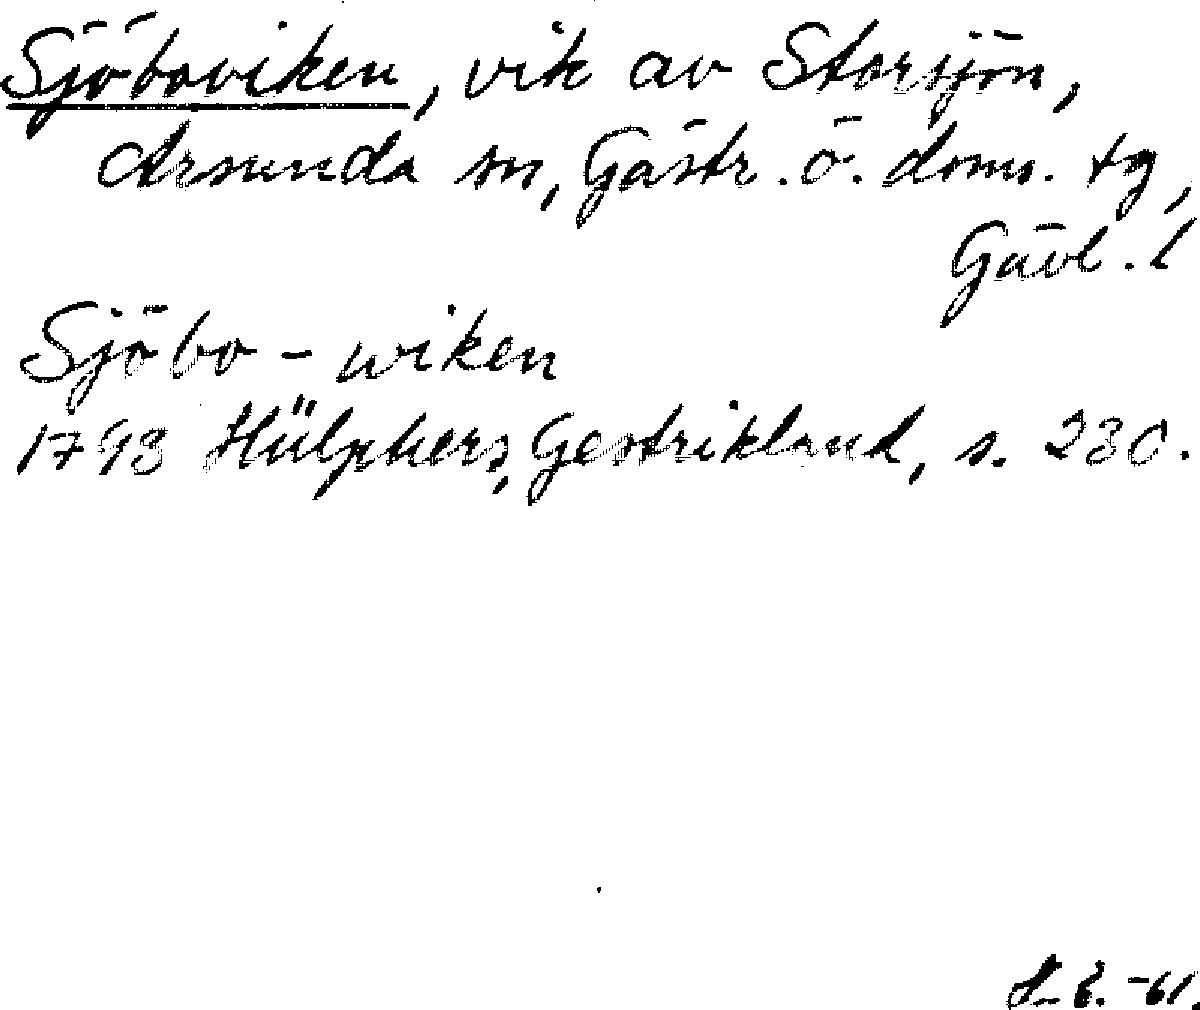 Sjöboviken, vik av Storsjön,
Årsunda sn, Gästr. ö. doms. tg,
Gävl. l
Sjöbo-wiken
1793 Hülphers, Gestrikland, s. 230.
-61.